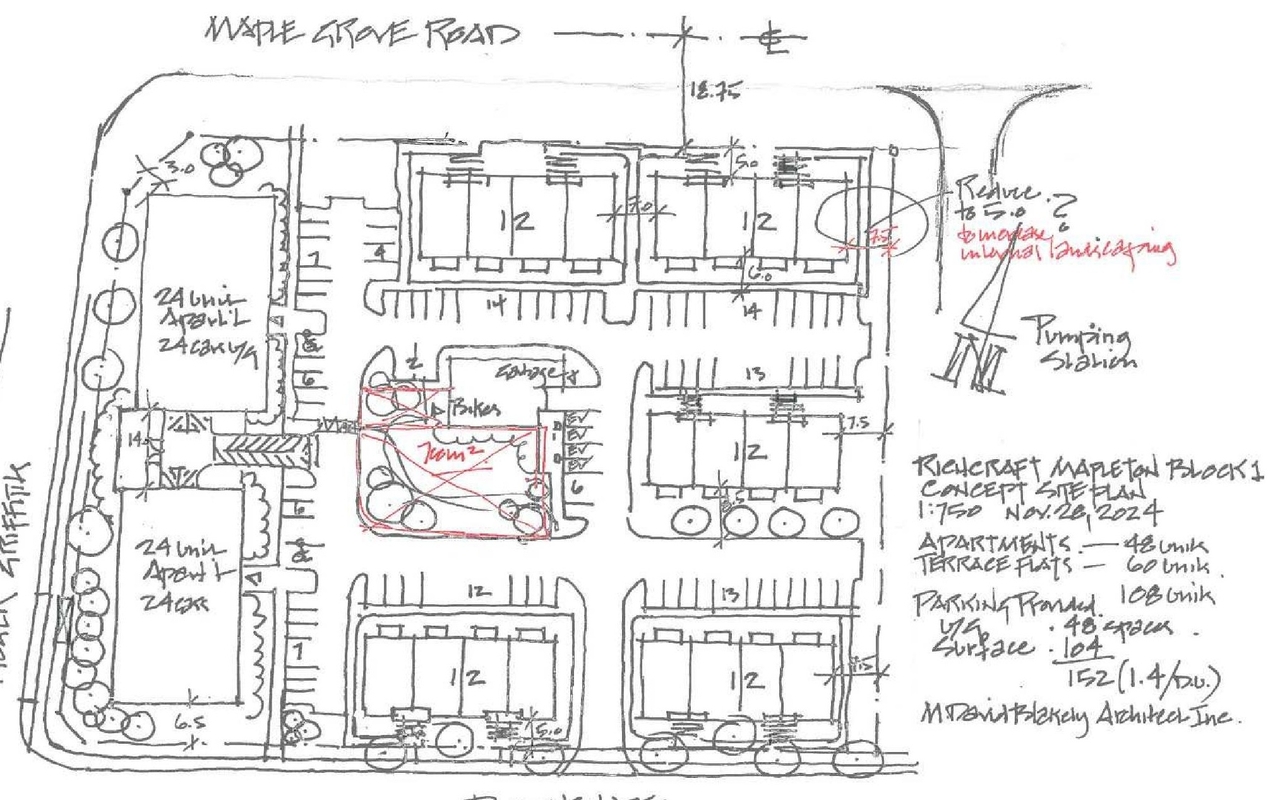 MAPLE GROVE ROAD
18.75
3.0
5.0
12
7.0
12
Reduce
to 5.0 ?
to increase
internal landscaping
7.5
7
4
6.0
14
14
24 Unit
Apart't
24 cars U/G
Pumping
Station
8
6
2
Garbage
13
Bikes
EV
EV
EV
EV
14
12
7.5
6
6
RICHCRAFT MAPLETON BLOCK 1
CONCEPT SITE PLAN
1:750 Nov. 28, 2024
24 Unit
Apart't
24 cars
8
APARTMENTS — 48 units
TERRACE FLATS — 60 units
108 units
12
13
PARKING Provided.
U/G. 48 spaces.
Surface. 104
152 (1.4/D.U.)
7
12
12
7.5
6.5
5.0
M David Blakely Architect Inc.